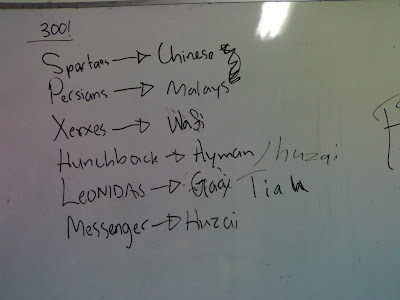 300!
Spartans → Chinese
Persians → Malays
Xerxes → Wafi
Hunchback → Ayman / huzai
LEONIDAS → Tiah
Messenger → Huzai